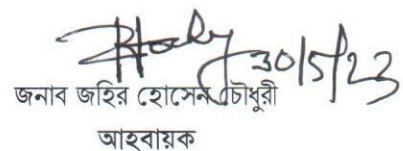 30/5/23
জনাব জহির হোসেন চৌধুরী
আহবায়ক